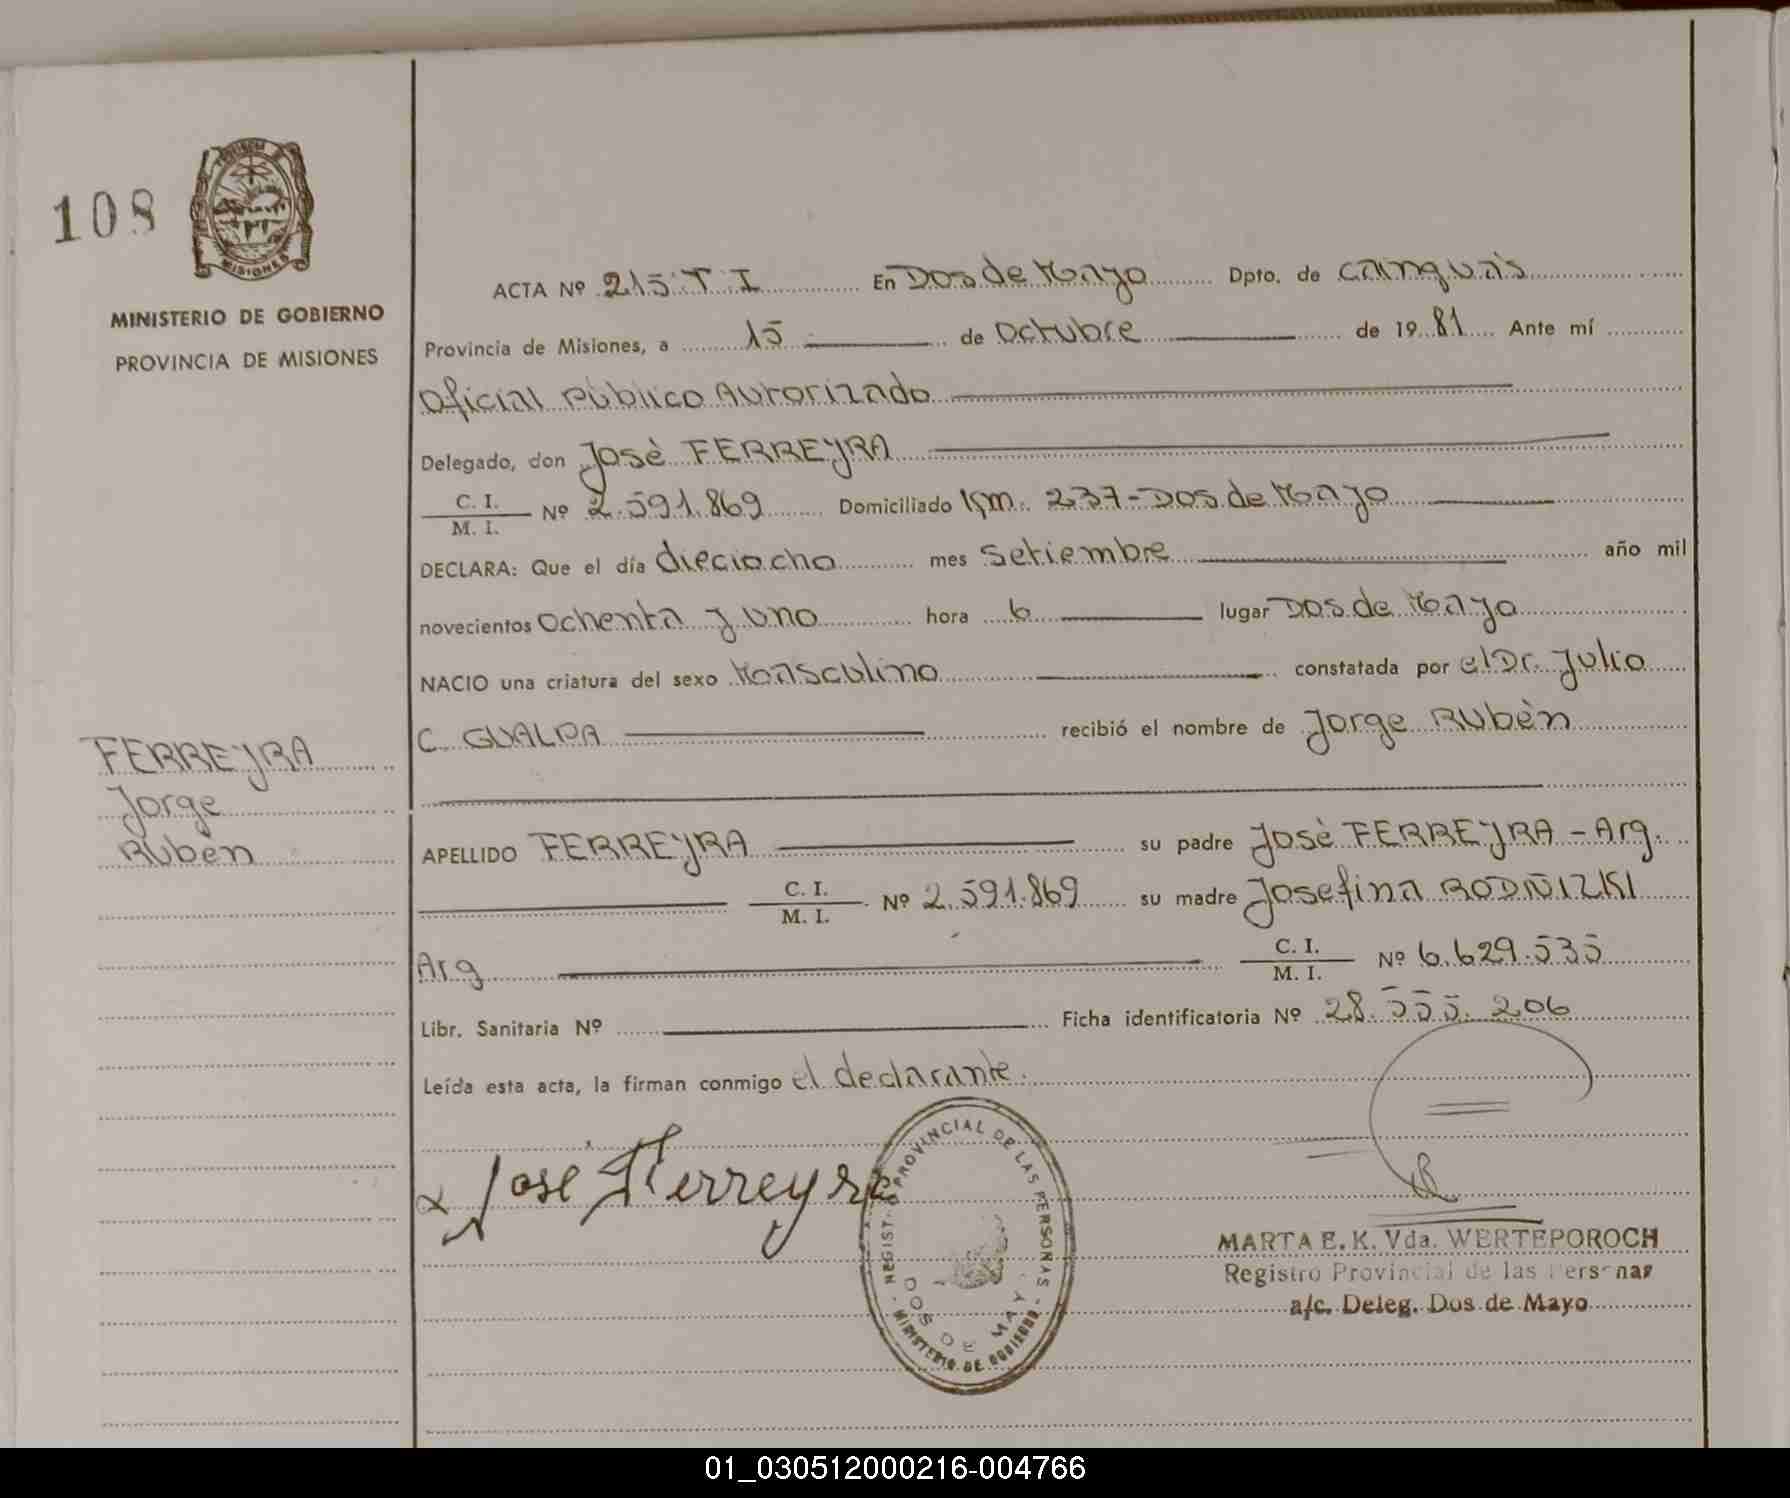 108
MINISTERIO DE GOBIERNO
PROVINCIA DE MISIONES
FERREYRA
Jorge
Rubén
ACTA Nº 215 T I En Dos de Mayo Dpto. de Cainguás
Provincia de Misiones, a 15 de Octubre de 1981 Ante mí
Oficial Público Autorizado
Delegado, don José FERREYRA
C. I.
M. I. Nº 2.591.869 Domiciliado Km. 237-Dos de Mayo
DECLARA: Que el día dieciocho mes Setiembre año mil
novecientos ochenta y uno hora 6 lugar Dos de Mayo
NACIO una criatura del sexo Masculino constatada por el Dr. Julio
C. GUALPA recibió el nombre de Jorge Rubén
APELLIDO FERREYRA su padre José FERREYRA - Arg.
C. I.
M. I. Nº 2.591.869 su madre Josefina RODÑIZKI
Arg C. I.
M. I. Nº 6.629.535
Libr. Sanitaria Nº Ficha identificatoria Nº 28.555.206
Leída esta acta, la firman conmigo el declarante.
Jose Ferreyra
REGISTRO PROVINCIAL DE LAS PERSONAS
DOS DE MAYO
MINISTERIO DE GOBIERNO
MARTA E. K. Vda. WERTEPOROCH
Registro Provincial de las Personas
a/c. Deleg. Dos de Mayo
01_030512000216-004766